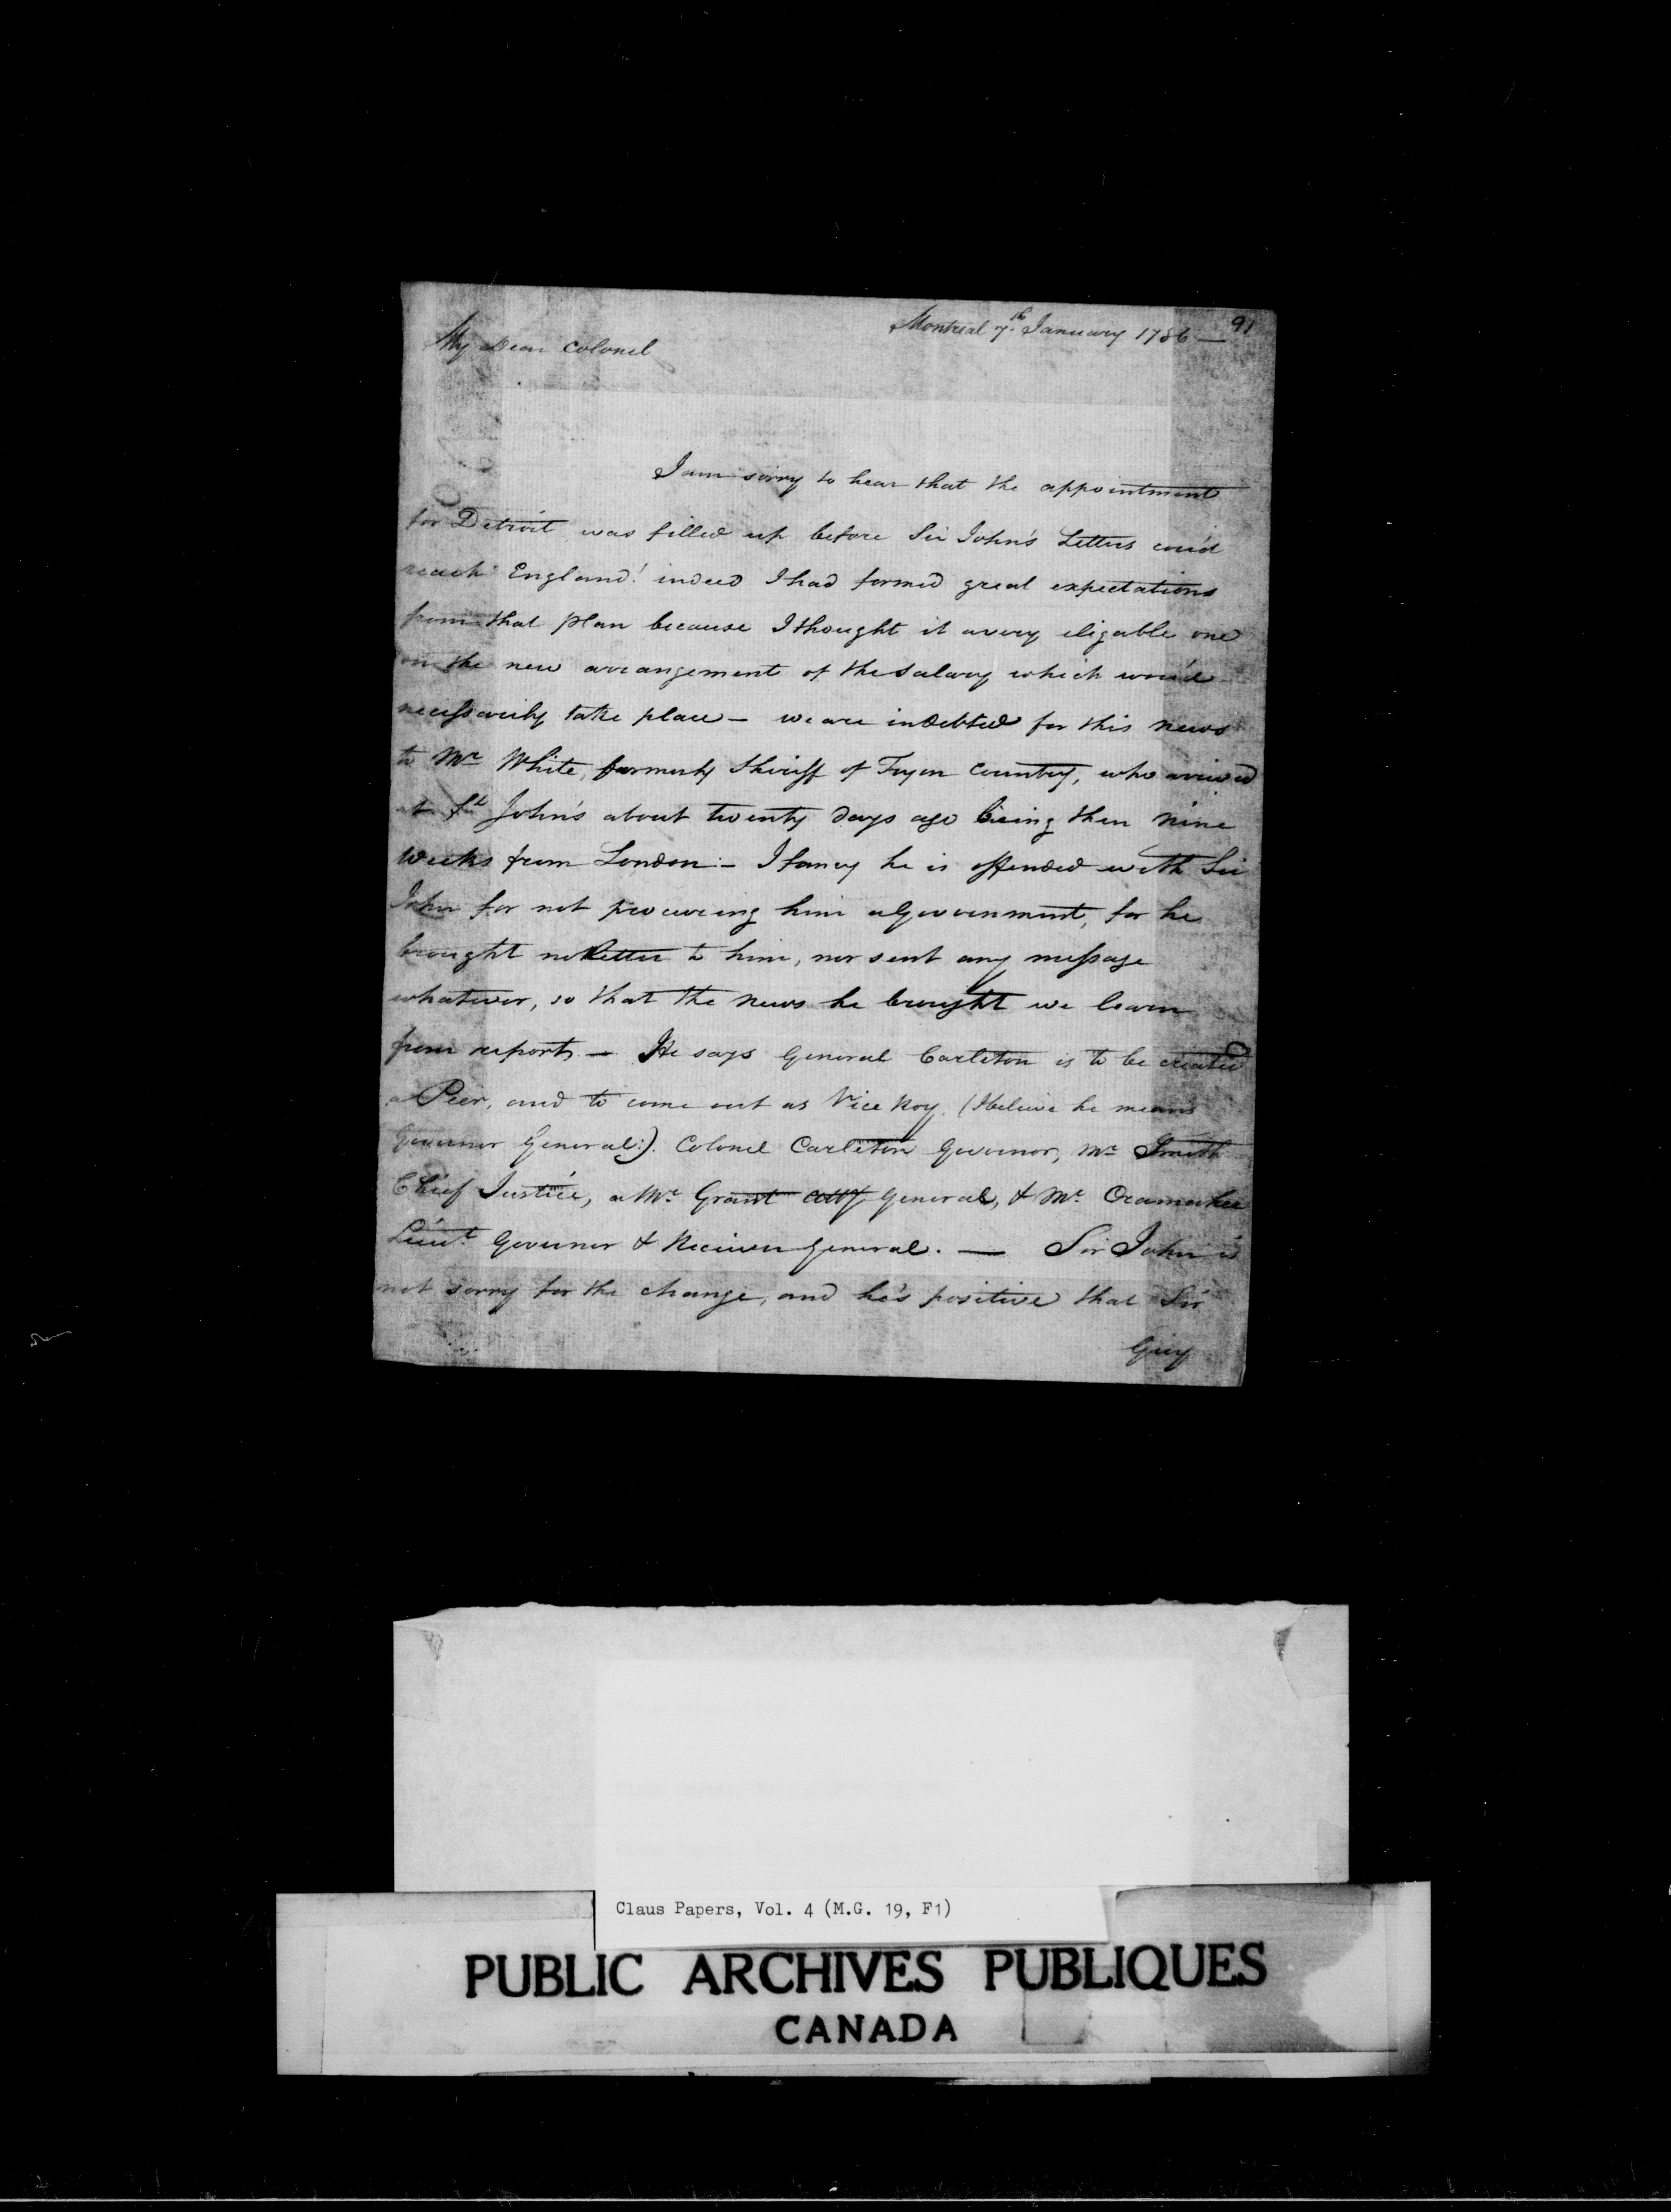 91
Montreal 7th January 1786 —
My Dear Colonel
I am sorry to hear that the appointment
for Detroit was filled up before Sir John's Letters cou'd
reach England! indeed I had formed great expectations
from that plan because I thought it a very eligable one
on the new arrangement of the salary which wou'd
necessarily take place — we are indebted for this news
to Mr White, formerly Sheriff of Tryon Country, who arrived
at St John's about twenty days ago being then nine
weeks from London:— I fancy he is offended with Sir
John for not procureing him a Government, for he
brought no letter to him, nor sent any message
whatever, so that the news he brought we learn
from report. — He says General Carleton is to be created
a Peer, and to come out as Vice Roy, (I beleive he means
Governor General:). Colonel Carleton Governor, Mr Smith
Chief Justice, a Mr Grant Atty General, & Mr Cramahee
Lieut Governor & Receiver General. — Sir John is
not sorry for the change, and he's positive that Sir
Guy
Claus Papers, Vol. 4 (M.G. 19, F1)
PUBLIC ARCHIVES PUBLIQUES
CANADA